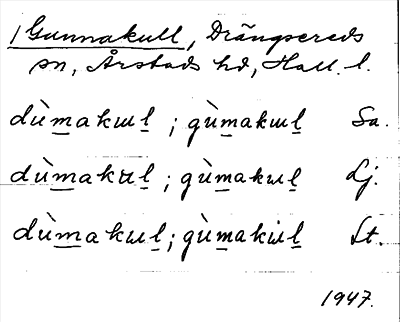 1 Gunnakull, Drängsereds
sn, Årstads hd, Hall. l.
dùmakɯl ; gùmakɯl Sa.
dùmakul ; gùmakɯl Lj.
dùmakɯl ; gùmakɯl St.
1947.